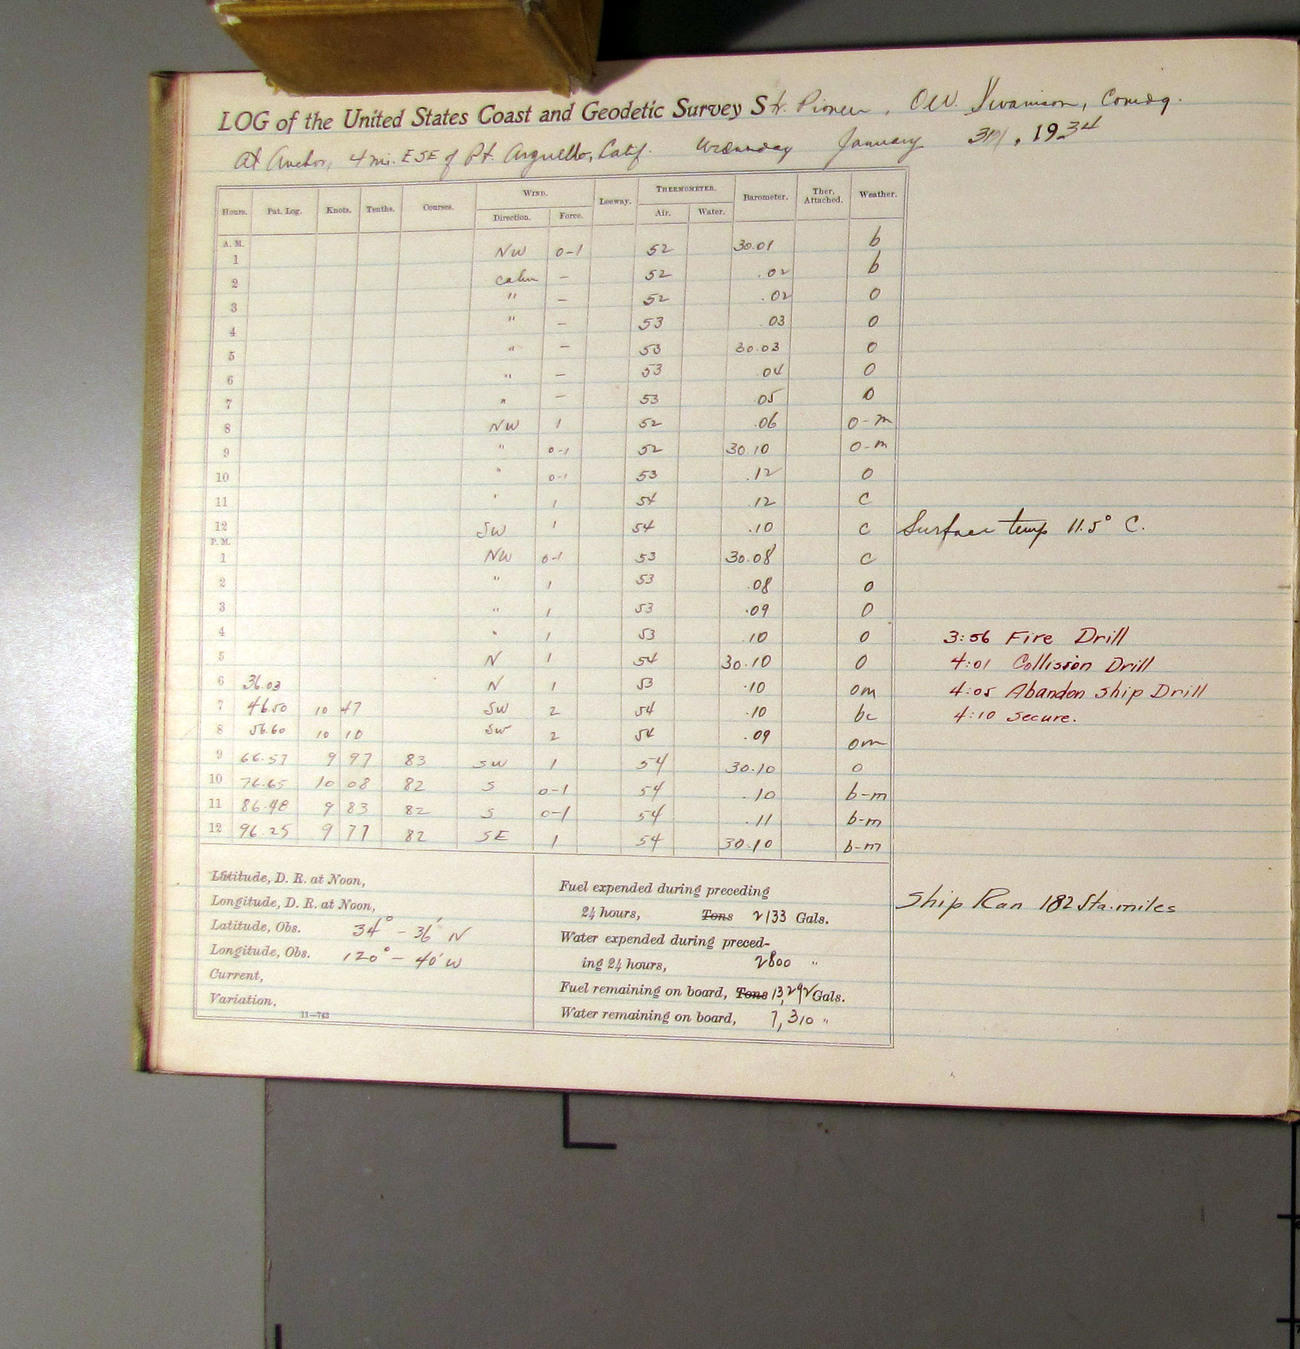 LOG of the United States Coast and Geodetic Survey Str. Pioneer, O.W. Swainson, Comdg.
At Anchor, 4 mi. ESE of Pt. Arguello, Calif. Wednesday January 31, 1934
Hours. Pat. Log. Knots. Tenths. Courses. WIND. Direction. Force. Leeway. THERMOMETER. Air. Water. Barometer. Ther. Attached. Weather.
A. M.
1 NW 0-1 52 30.01 b
2 calm — 52 .02 b
3 " — 52 .02 o
4 " — 53 .03 o
5 " — 53 30.03 o
6 " — 53 .04 o
7 " — 53 .05 o
8 NW 1 52 .06 o-m
9 " 0-1 52 30.10 o-m
10 " 0-1 53 .12 o
11 " 1 54 .12 c
12 SW 1 54 .10 c Surface temp 11.5° C.
P. M.
1 NW 0-1 53 30.08 c
2 " 1 53 .08 o
3 " 1 53 .09 o
4 " 1 53 .10 o 3:56 Fire Drill
5 N 1 54 30.10 o 4:01 Collision Drill
6 36.03 N 1 53 .10 om 4:05 Abandon Ship Drill
7 46.50 10 47 SW 2 54 .10 bc 4:10 Secure.
8 56.60 10 10 SW 2 54 .09 om
9 66.57 9 97 83 SW 1 54 30.10 o
10 76.65 10 08 82 S 0-1 54 .10 b-m
11 86.48 9 83 82 S 0-1 54 .11 b-m
12 96.25 9 77 82 SE 1 54 30.10 b-m
Latitude, D. R. at Noon,
Longitude, D. R. at Noon,
Latitude, Obs. 34° - 36' N
Longitude, Obs. 120° - 40' W
Current,
Variation,
11—763
Fuel expended during preceding
24 hours, Tons 2133 Gals.
Water expended during preced-
ing 24 hours, 2800 "
Fuel remaining on board, Tons 13,292 Gals.
Water remaining on board, 7,310 "
Ship Ran 182 Sta. miles